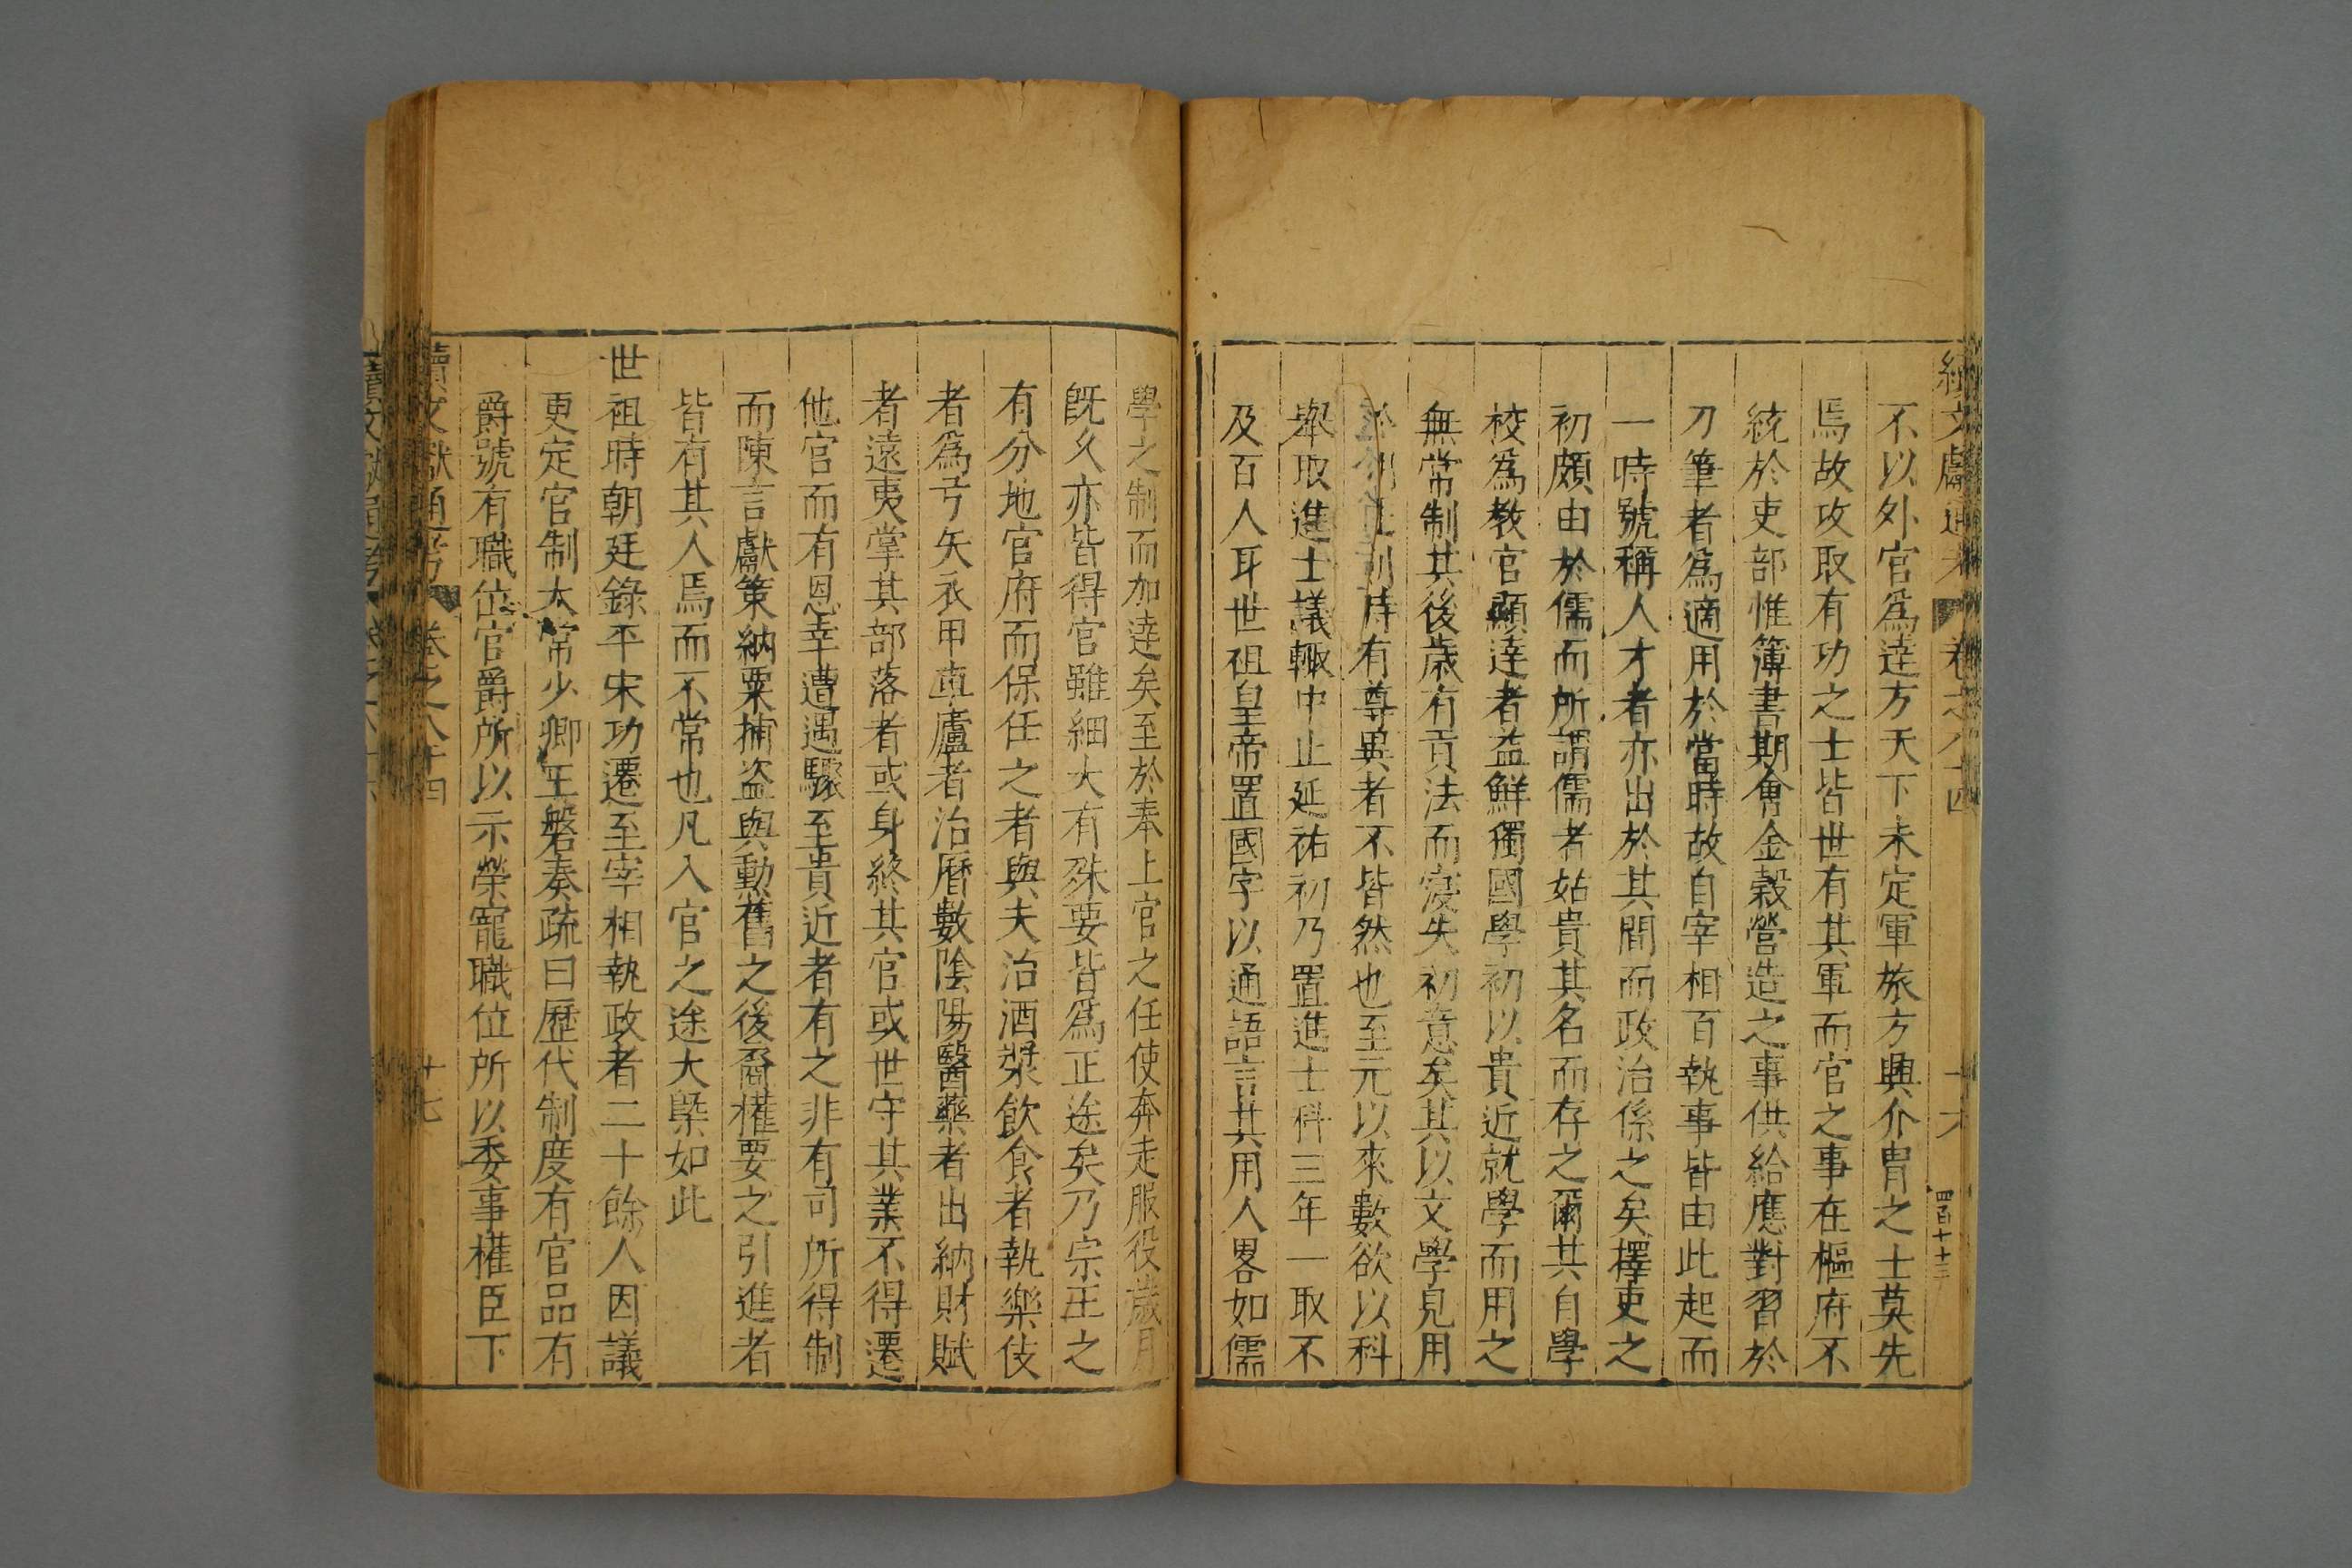 續文獻通考 卷之八十四 十六 四百七十三
不以外官爲達方天下未定軍旅方興介冑之士莫先
焉故攻取有功之士皆世有其軍而官之事在樞府不
統於吏部惟簿書期會金穀營造之事供給應對習於
刀筆者爲適用於當時故自宰相百執事皆由此起而
一時號稱人才者亦出於其間而政治係之矣擇吏之
初頗由於儒而所謂儒者姑貴其名而存之爾其自學
校爲教官顯達者益鮮獨國學初以貴近就學而用之
無常制其後歲有貢法而寖失初意矣其以文學見用
時有尊異者不皆然也至元以來數欲以科
舉取進士議輙中止延祐初乃置進士科三年一取不
及百人耳世祖皇帝置國字以通語言其用人畧如儒
學之制而加達矣至於奉上官之任使奔走服役歲月
旣久亦皆得官雖細大有殊要皆爲正途矣乃宗王之
有分地官府而保任之者與夫治酒漿飲食者執樂伎
者爲弓矢衣甲車廬者治曆數陰陽醫藥者出納財賦
者遠夷掌其部落者或身終其官或世守其業不得遷
他官而有恩幸遭遇驟至貴近者有之非有司所得制
而陳言獻策納粟捕盗與勳舊之後裔權要之引進者
皆有其人焉而不常也凡入官之途大槩如此
世祖時朝廷錄平宋功遷至宰相執政者二十餘人因議
更定官制太常少卿王磐奏疏曰歷代制度有官品有
爵號有職位官爵所以示榮寵職位所以委事權臣下
續文獻通考 卷之八十四 十七